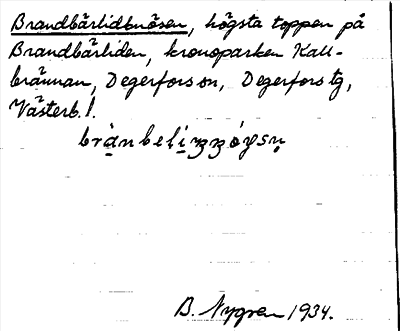 Brandbärlidknösen, högsta toppen på
Brandbärliden, kronoparken Kall-
brännan, Degerfors sn, Degerfors tg,
Västerb. l.
B. Nygren 1934.